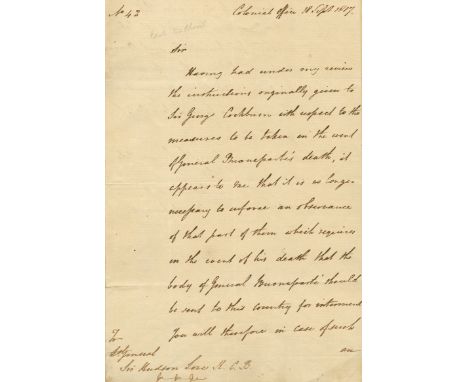 No 42
Colonial Office 18 Septr 1817.
Sir
Having had under my review
the instructions originally given to
Sir George Cockburn with respect to the
measures to be taken in the event
of General Buonaparte's death, it
appears to me that it is no longer
necessary to enforce an observance
of that part of them which requires
in the event of his death that the
body of General Buonaparte should
be sent to this country for interment
You will therefore in case of such
an
To
Lt General
Sir Hudson Lowe K.C.B.